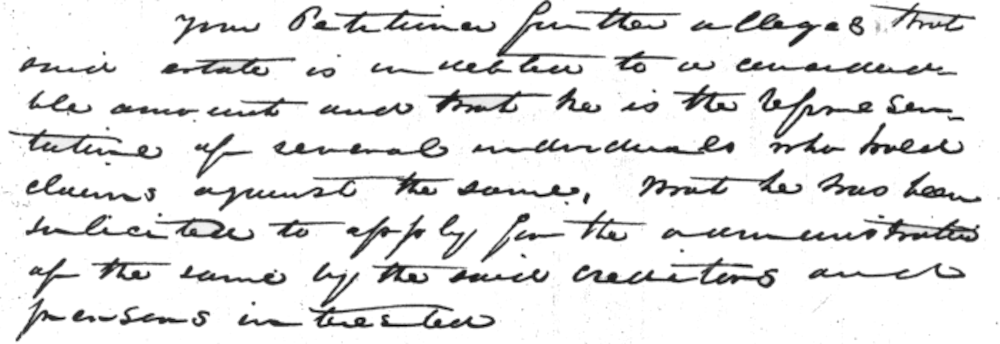 your Petitioner further alleges that
said estate is indebted to a considera-
ble amount and that he is the represen-
tative of several individuals who hold
claims against the same, that he has been
solicited to apply for the administration
of the same by the said creditors and
persons interested